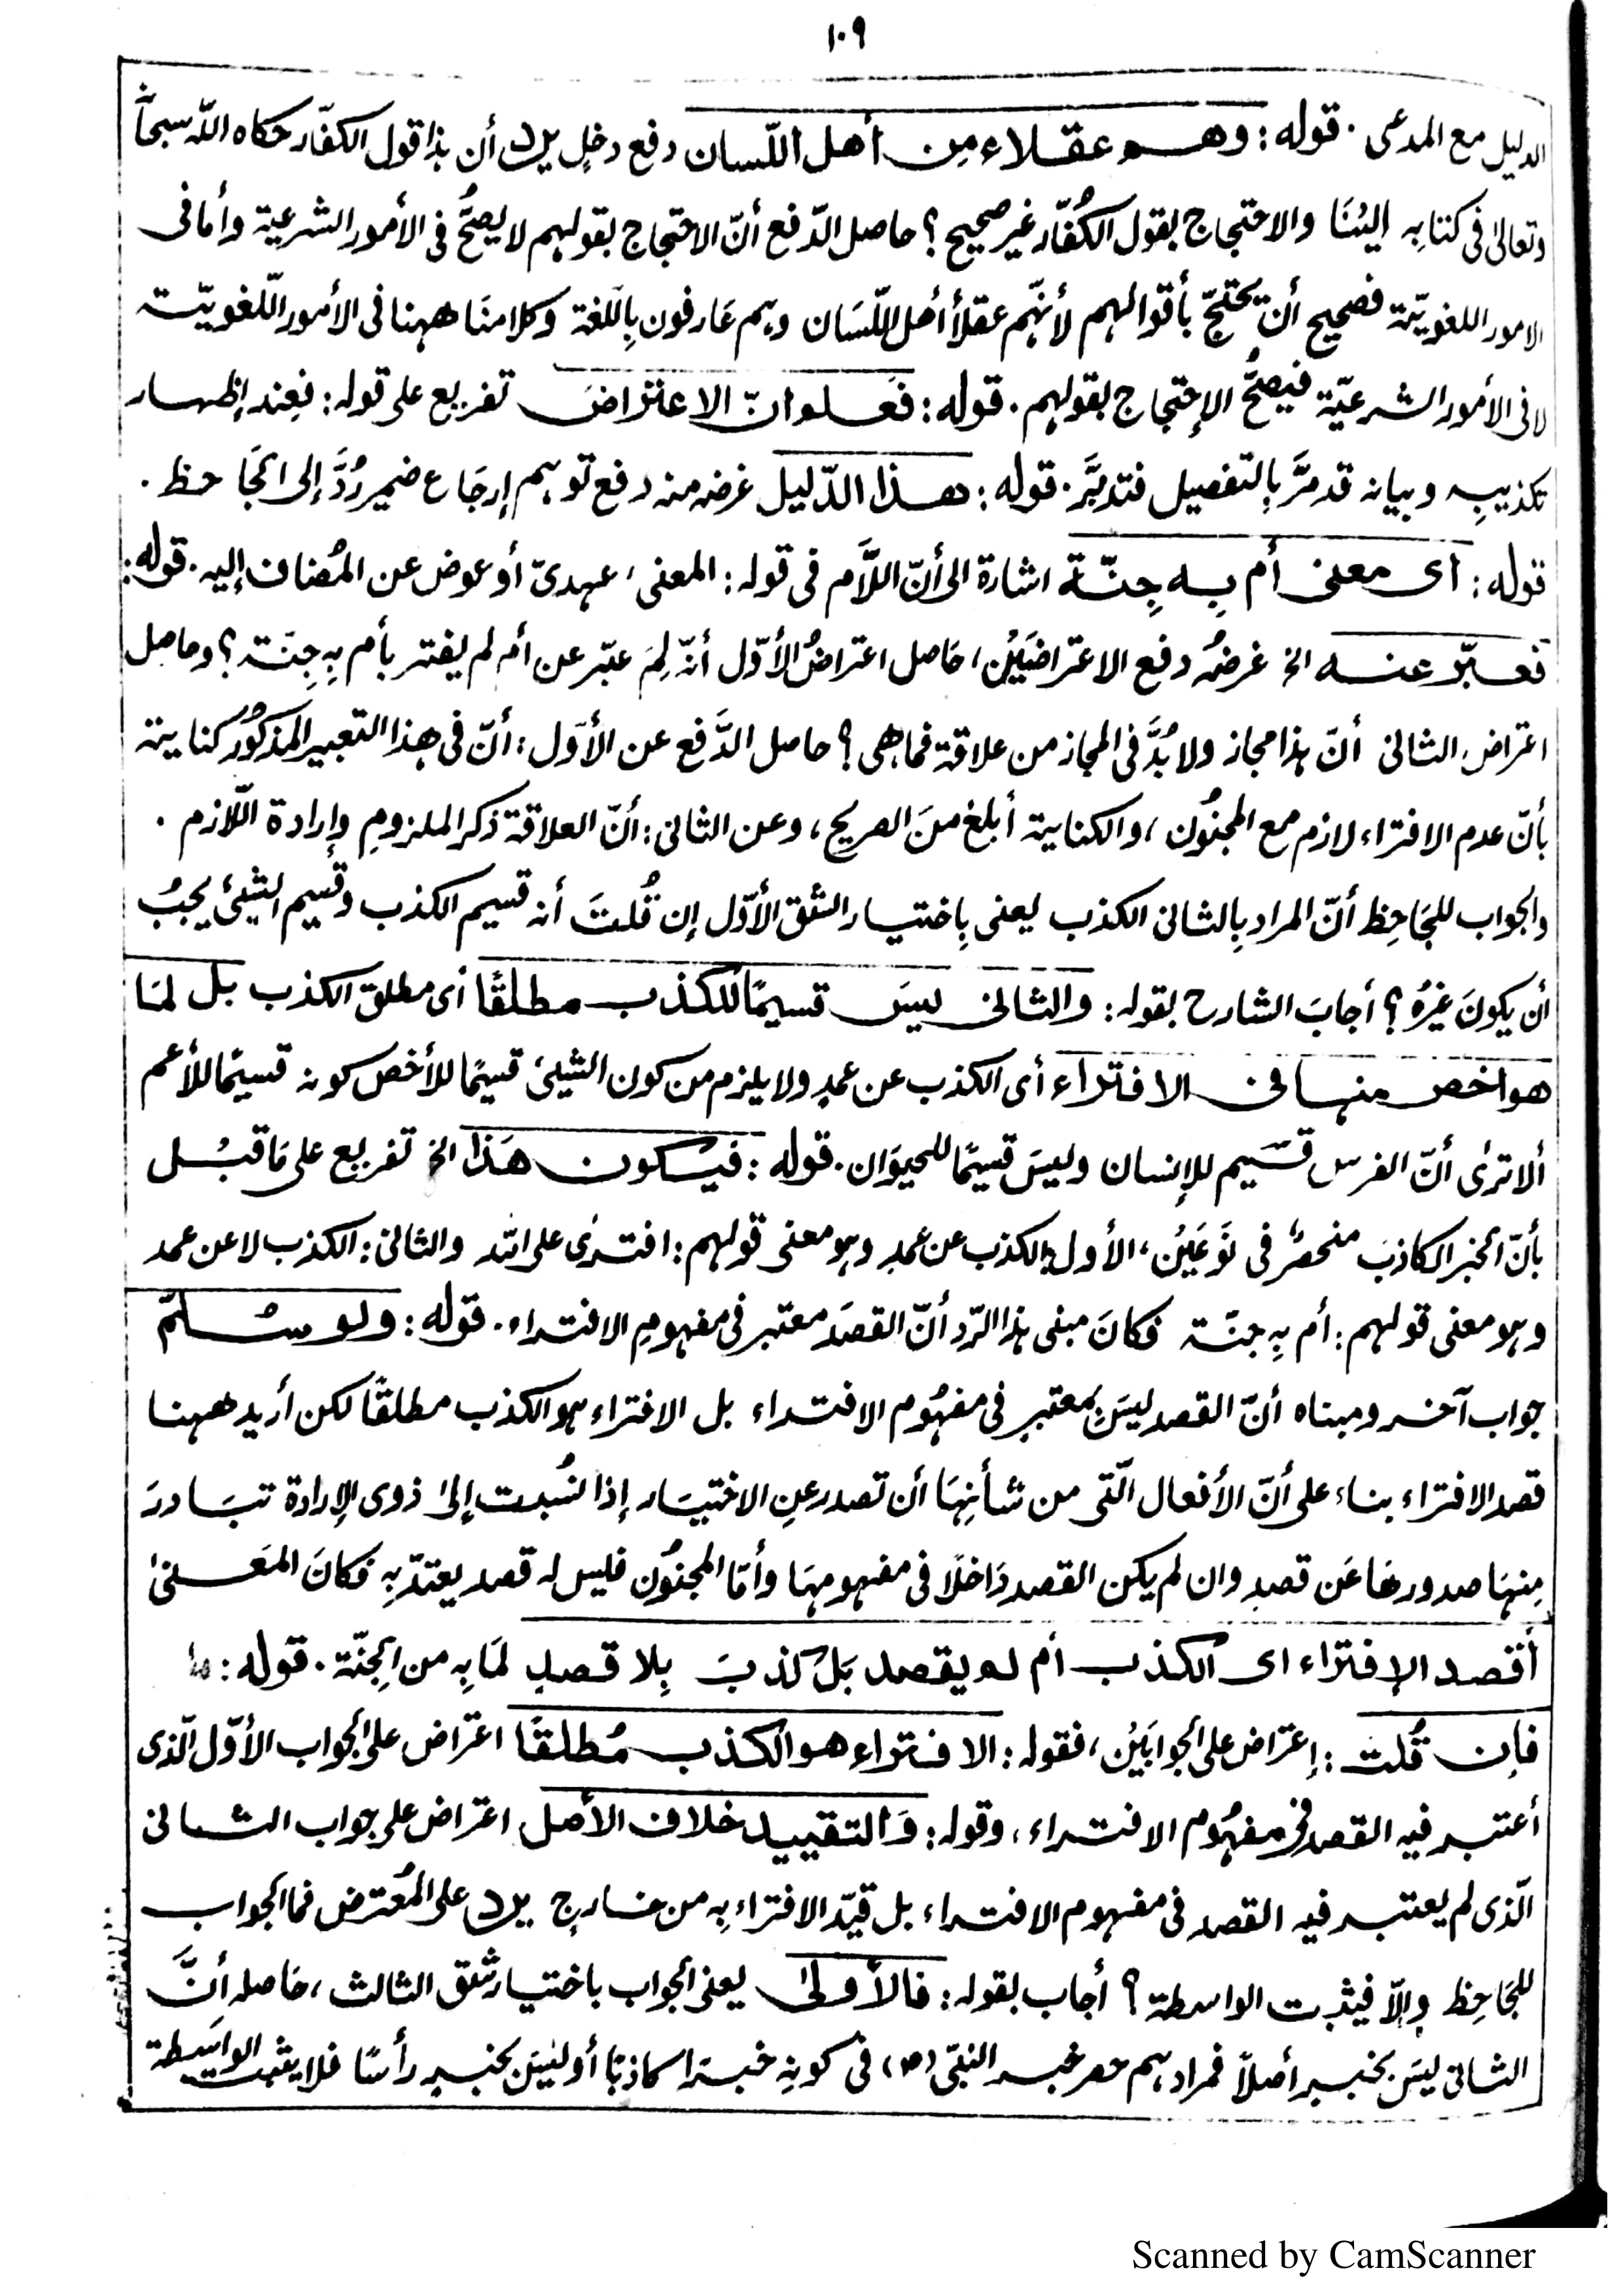 ١٠٩
الدليل مع المدعى . قوله : وهم عقلاء من أهل اللّسان دفع دخلٍ يرد أن هذا قول الكفّار حكاه اللّه سبحانه
وتعالىٰ فى كتابه إلينَا والاحتجاج بقول الكُفّار غير صحيح ؟ حاصل الدّفع أنّ الاحتجاج بقولهم لا يصحُّ فى الأمور الشرعيّة وأما فى
الامور اللغويّة فصحيح أن يحتجّ بأقوالهم لأنّهم عقلاً أهل اللّسَان وهم عَارفون بِاللّغة وكلامنَا ههنا فى الأمور اللّغويّة
لا فى الأمور الشرعيّة فيصحُّ الإحتجاج بقولهم . قوله : فعلوا انّ الاعتراضَ تفريع على قوله : فعِند إظهار
تكذيبِه وبيانه قد مرَّ بِالتّفصيل فتدبَّر . قوله : هذا الدّليل غرضه منه دفع توهم إرجَاع ضمير رُدَّ إلى الجَاحظ .
قوله : اى معنى أم بِه جِنّة اشارة الى أنّ اللاَّم فى قوله : المعنىٰ ، عهدىّ أو عوض عن المُضاف إليه . قوله :
فعبّر عنه الخ غرضُه دفع الاعتراضَيْن ، حَاصل اعتراضُ الأوّل أنّه لِمَ عبّر عن أم لم يفتر بأم بِهِ جِنّة ؟ وحاصل
اعتراض الثانى أنّ هذا مجاز ولا بُدَّ فى المجاز من علاقة فما هى ؟ حاصل الدَّفع عن الأوّل : أنّ فى هذا التعبير المذكُور كناية
بأنّ عدم الافتراء لازم مع المجنُون ، والكناية أبلغ منَ الصريح ، وعن الثانى : أنّ العلاقة ذكر الملزومِ وإرادة اللّازم .
والجواب للجَاحِظ أنّ المراد بِالثانى الكذب يعنى بِاختيار الشق الأوّل إن قُلتَ أنه قسيم الكذب وقسيم الشيئ يجبُ
أن يكونَ غيرُه ؟ أجابَ الشارح بقوله : والثانى ليسَ قسيمًا للكذب مطلقًا أى مطلق الكذب بل لمَا
هو اخص منها فى الافتراء أى الكذب عن عمدٍ ولا يلزم من كون الشيئ قسيمًا للأخص كونه قسيمًا للأعم
ألا ترىٰ أنّ الفرس قسَيم للإنسان وليسَ قسيمًا للحيوَان . قوله : فيكون هَذا الخ تفريع على مَا قبْل
بأنّ الخبر الكاذبَ منحصرٌ فى نَوعَيْن ، الأول : الكذب عن عمدٍ وهو معنى قولهم : افترىٰ على اللّه والثانى : الكذب لا عن عمد
وهو معنى قولهم : أم بِهِ جنّة فكانَ مبنى هذا الرّد أنّ القصدَ معتبر فى مفهومِ الافتراء . قوله : ولو سُلّم
جواب آخر ومبناه أنّ القصد ليسَ بمعتبرٍ فى مفهُومِ الافتراء بل الافتراء هو الكذب مطلقًا لكن أريد ههنا
قصد الافتراء بناء على أنّ الأفعال الّتى من شأنِهَا أن تصدر عنِ الاختيَار إذا نُسبت إلىٰ ذوى الإرادة تبَادرَ
مِنهَا صدورهَا عَن قصدٍ وان لم يكن القصد دَاخلًا فى مفهومهَا وأمّا المجنُون فليس له قصد يعتدّ بِه فكانَ المَعنىٰ
أقصد الإفتراء اى الكذب أم لم يقصد بَل كذبَ بِلا قصدٍ لمَا بِه من الجِنّة . قوله :
فإن قُلتَ : إعتراض على الجوابَيْن ، فقوله : الافتراء هو الكذب مُطلقًا اعتراض على الجواب الأوّل الّذى
أعتبر فيه القصد فى مفهُوم الافتراء ، وقوله : وَالتقييد خلاف الأصل اعتراض على جواب الثانى
الّذى لم يعتبر فيه القصد فى مفهوم الافتراء بل قيّد الافتراء بِه من خارج يرد على المُعترض فما الجواب
للجَاحِظ وإلاّ فيثبت الواسطة ؟ أجاب بقوله : فالأولىٰ يعنى الجواب باختيار شق الثالث ، حَاصله أنَّ
الثانى ليسَ بخبرٍ أصلاً فمرادهم حصر خبر النبىّ (ص) فى كونِه خبرًا كاذبًا أو ليْسَ بخبرٍ رأسًا فلا يثبت الواسِطة
Scanned by CamScanner